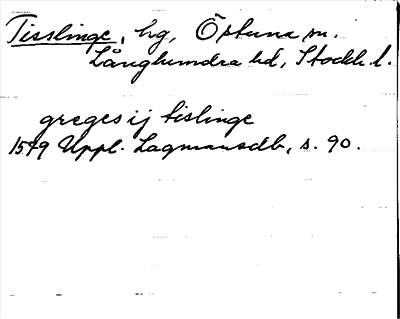 Tisslinge, hg, Östuna sn.
Långhundra hd, Stockh. l.
greges ij tislinge
1579 Uppl. Lagmansdb, s. 90.